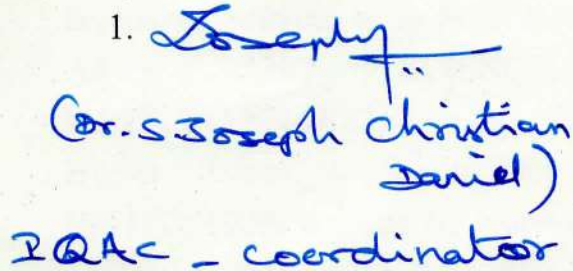 1. Joseph
(Dr. S Joseph Christian
Daniel)
IQAC - coordinator